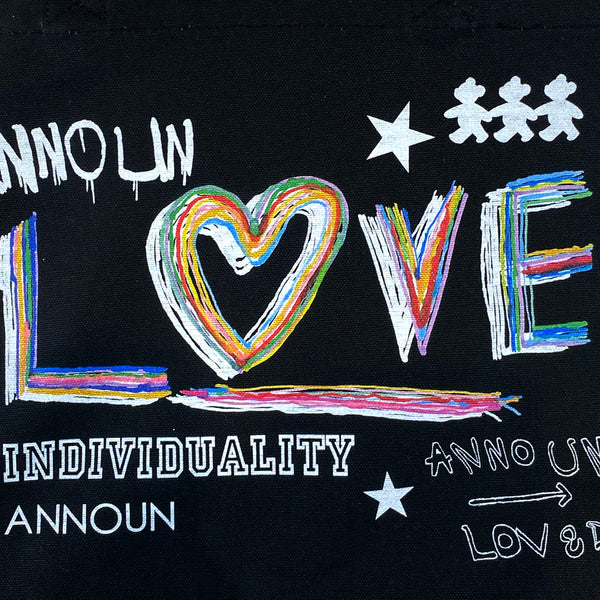 ANNOUN
LOVE
INDIVIDUALITY
ANNOUN
ANNOUN